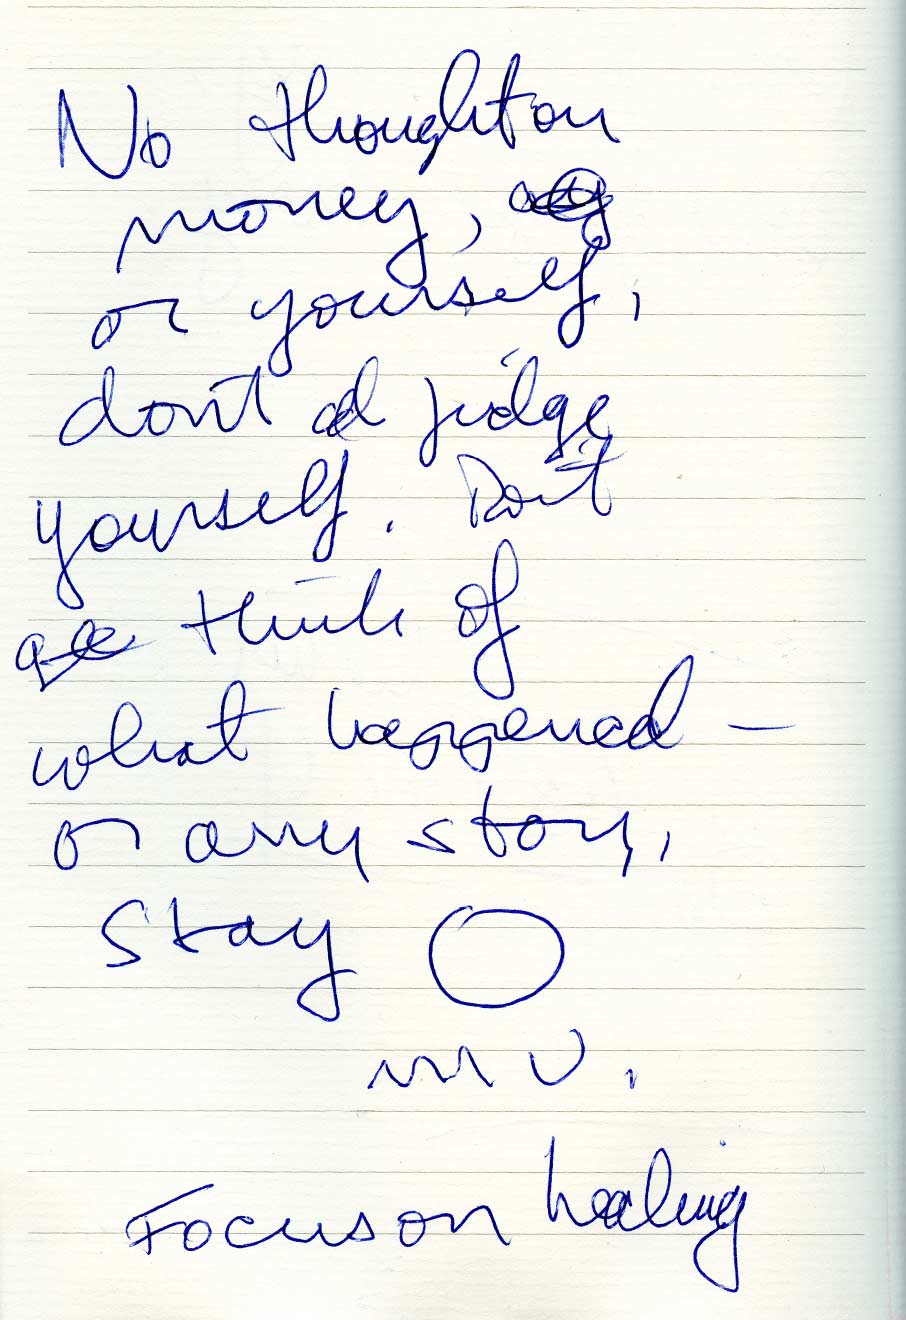 No thought on
money,
or yourself,
don't judge
yourself. Don't
think of
what happened –
or any story,
stay
Focus on healing